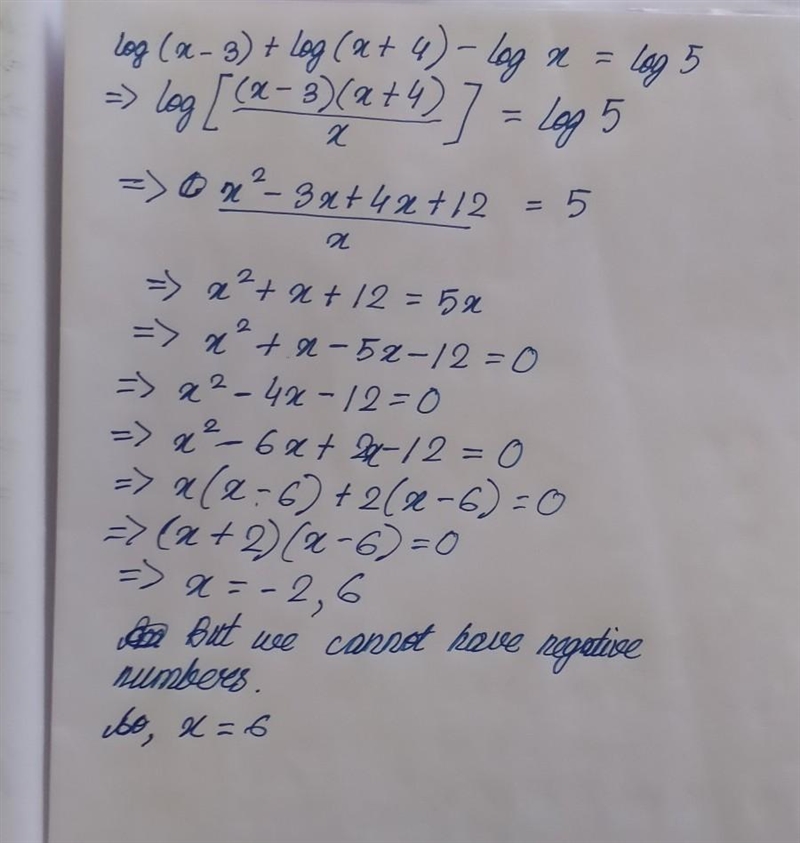 log(x-3) + log(x+4) - log x = log 5
=> log[(x-3)(x+4)/x] = log 5
=> x² - 3x + 4x + 12 / x = 5
=> x² + x + 12 = 5x
=> x² + x - 5x - 12 = 0
=> x² - 4x - 12 = 0
=> x² - 6x + 2x - 12 = 0
=> x(x-6) + 2(x-6) = 0
=> (x+2)(x-6) = 0
=> x = -2, 6
But we cannot have negative
numbers.
So, x = 6